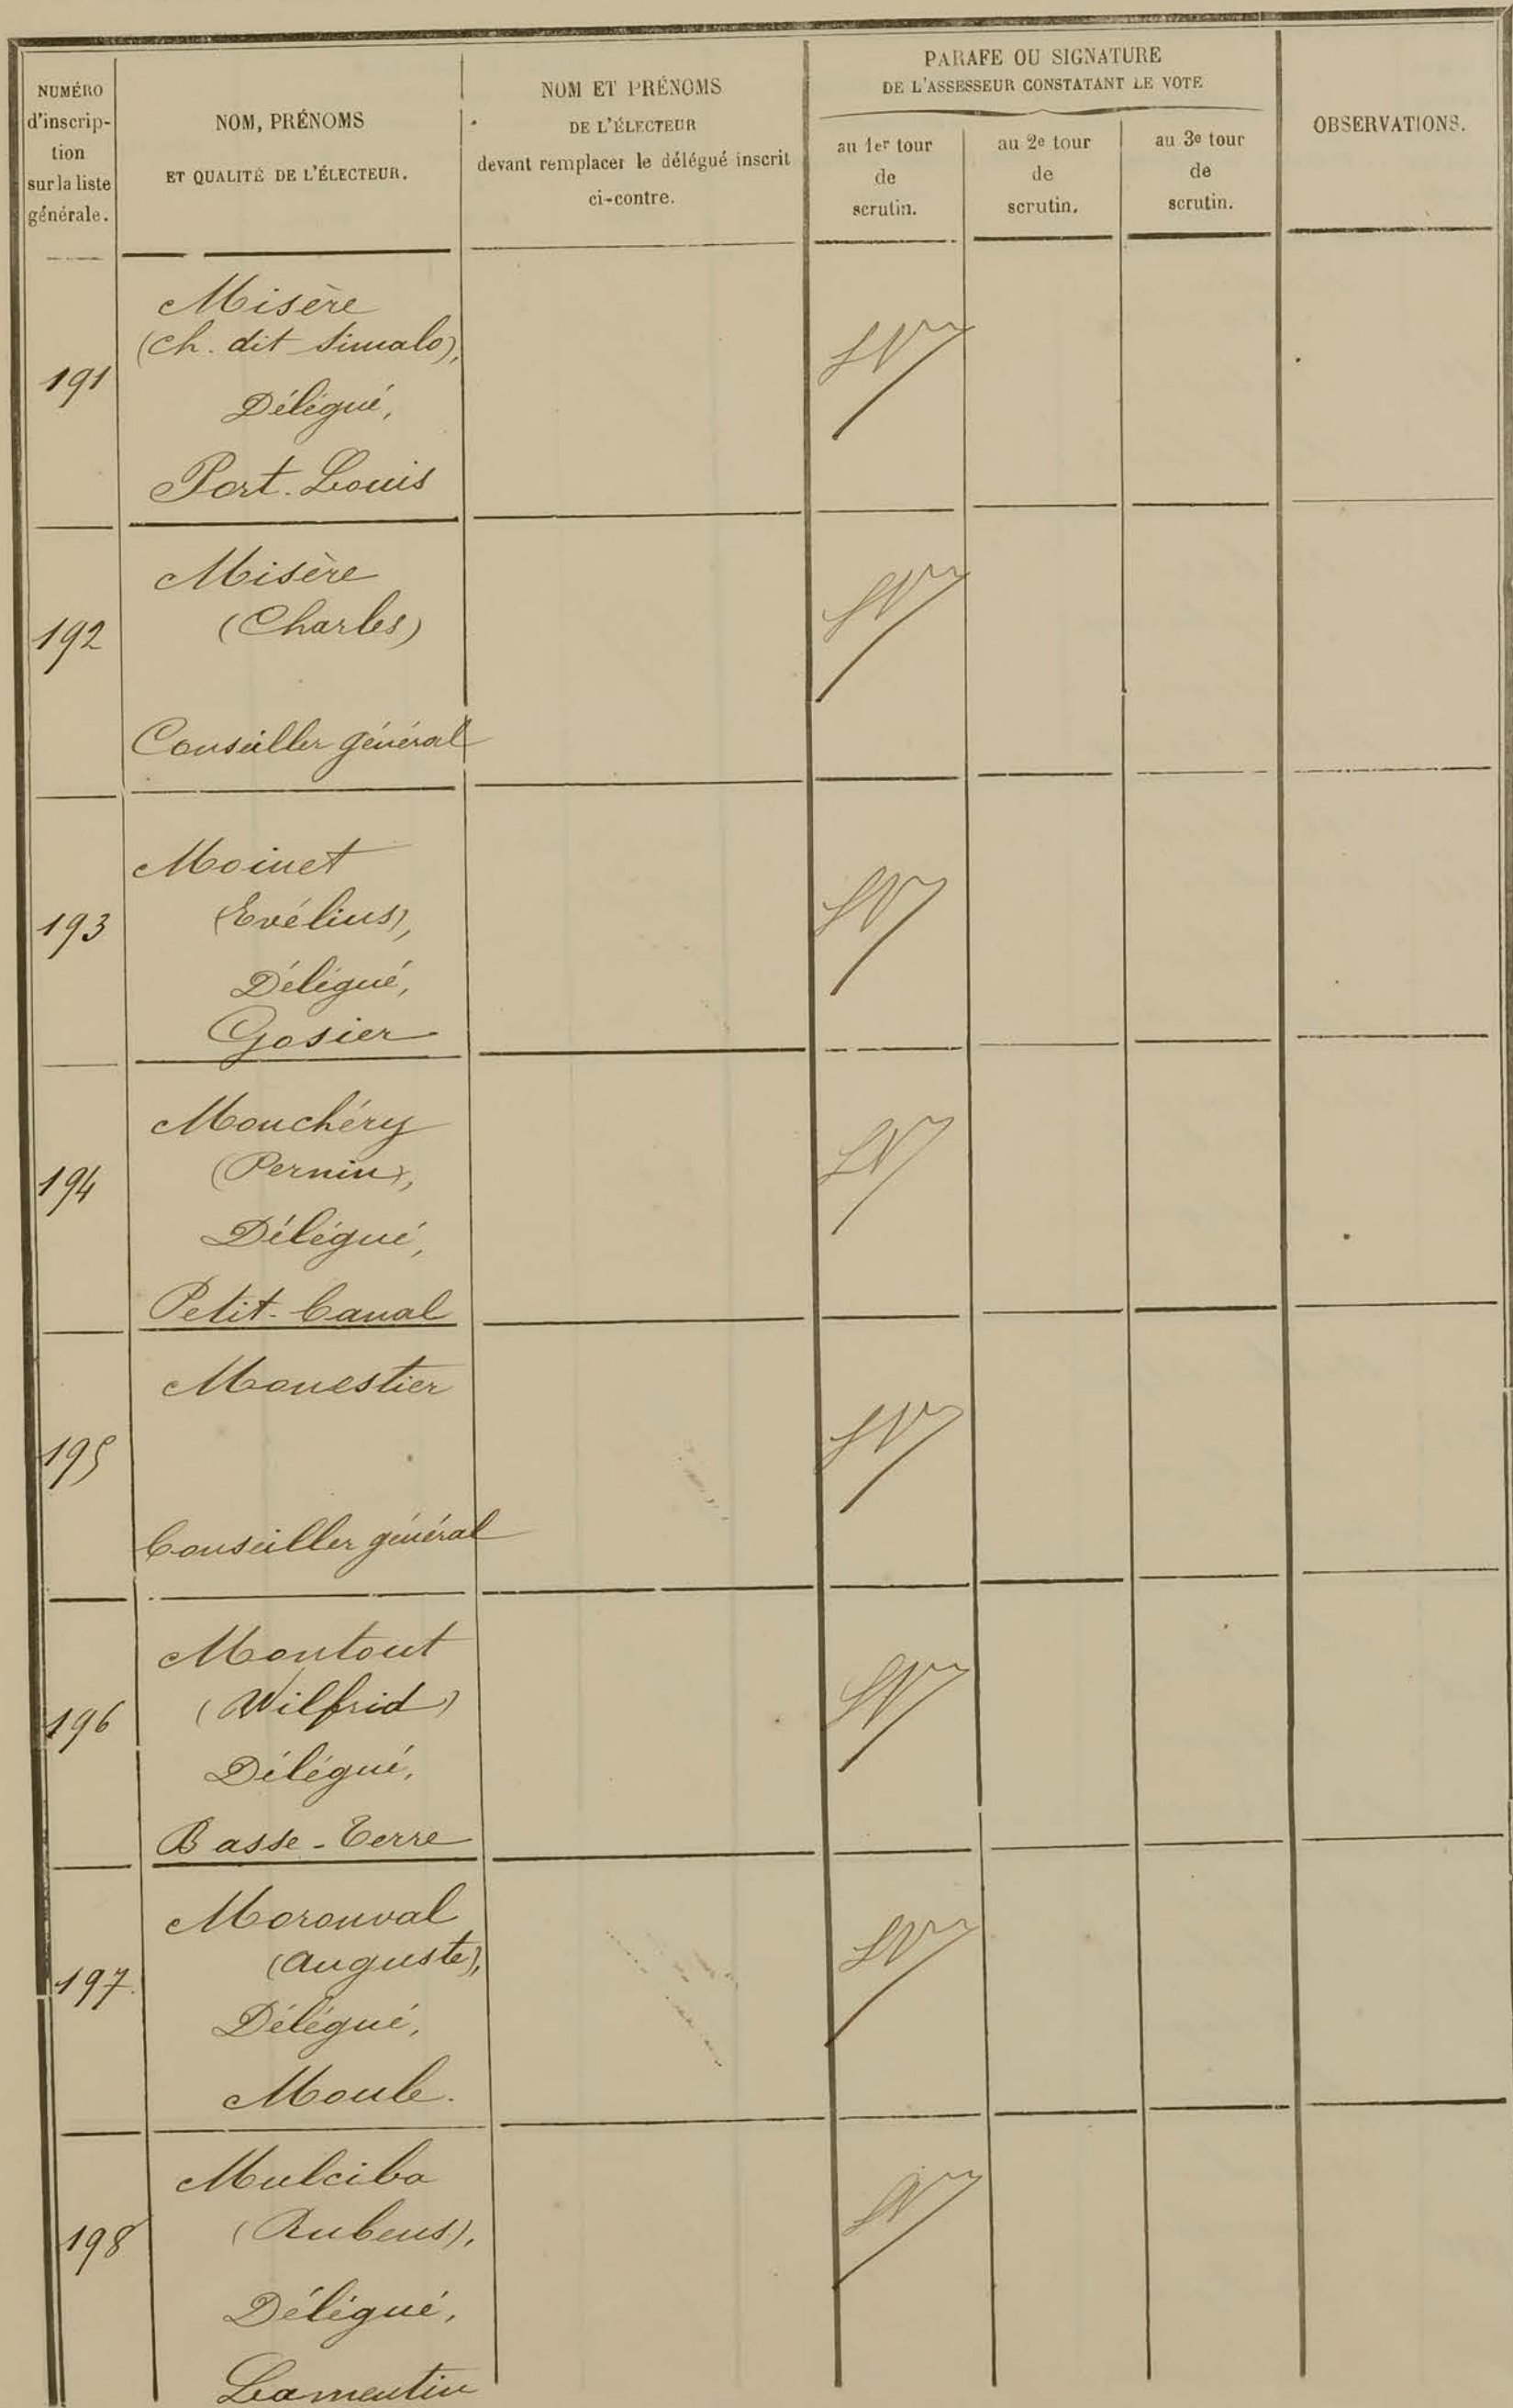 NUMÉRO
d'inscrip-
tion
sur la liste
générale.
NOM, PRÉNOMS
ET QUALITÉ DE L'ÉLECTEUR.
NOM ET PRÉNOMS
DE L'ÉLECTEUR
devant remplacer le délégué inscrit
ci-contre.
PARAFE OU SIGNATURE
DE L'ASSESSEUR CONSTATANT LE VOTE
au 1er tour
de
scrutin.
au 2e tour
de
scrutin.
au 3e tour
de
scrutin.
OBSERVATIONS.
191
Misère
(Ch. dit Simalo),
Délégué,
Port-Louis
192
Misère
(Charles)
Conseiller général
193
Moinet
(Evélius),
Délégué,
Gosier
194
Monchéry
(Pernin),
Délégué,
Petit-Canal
195
Monestier
Conseiller général
196
Montout
(Wilfrid)
Délégué,
Basse-Terre
197.
Moronval
(Auguste),
Délégué,
Moule.
198
Mulciba
(Rubens),
Délégué,
Lamentin